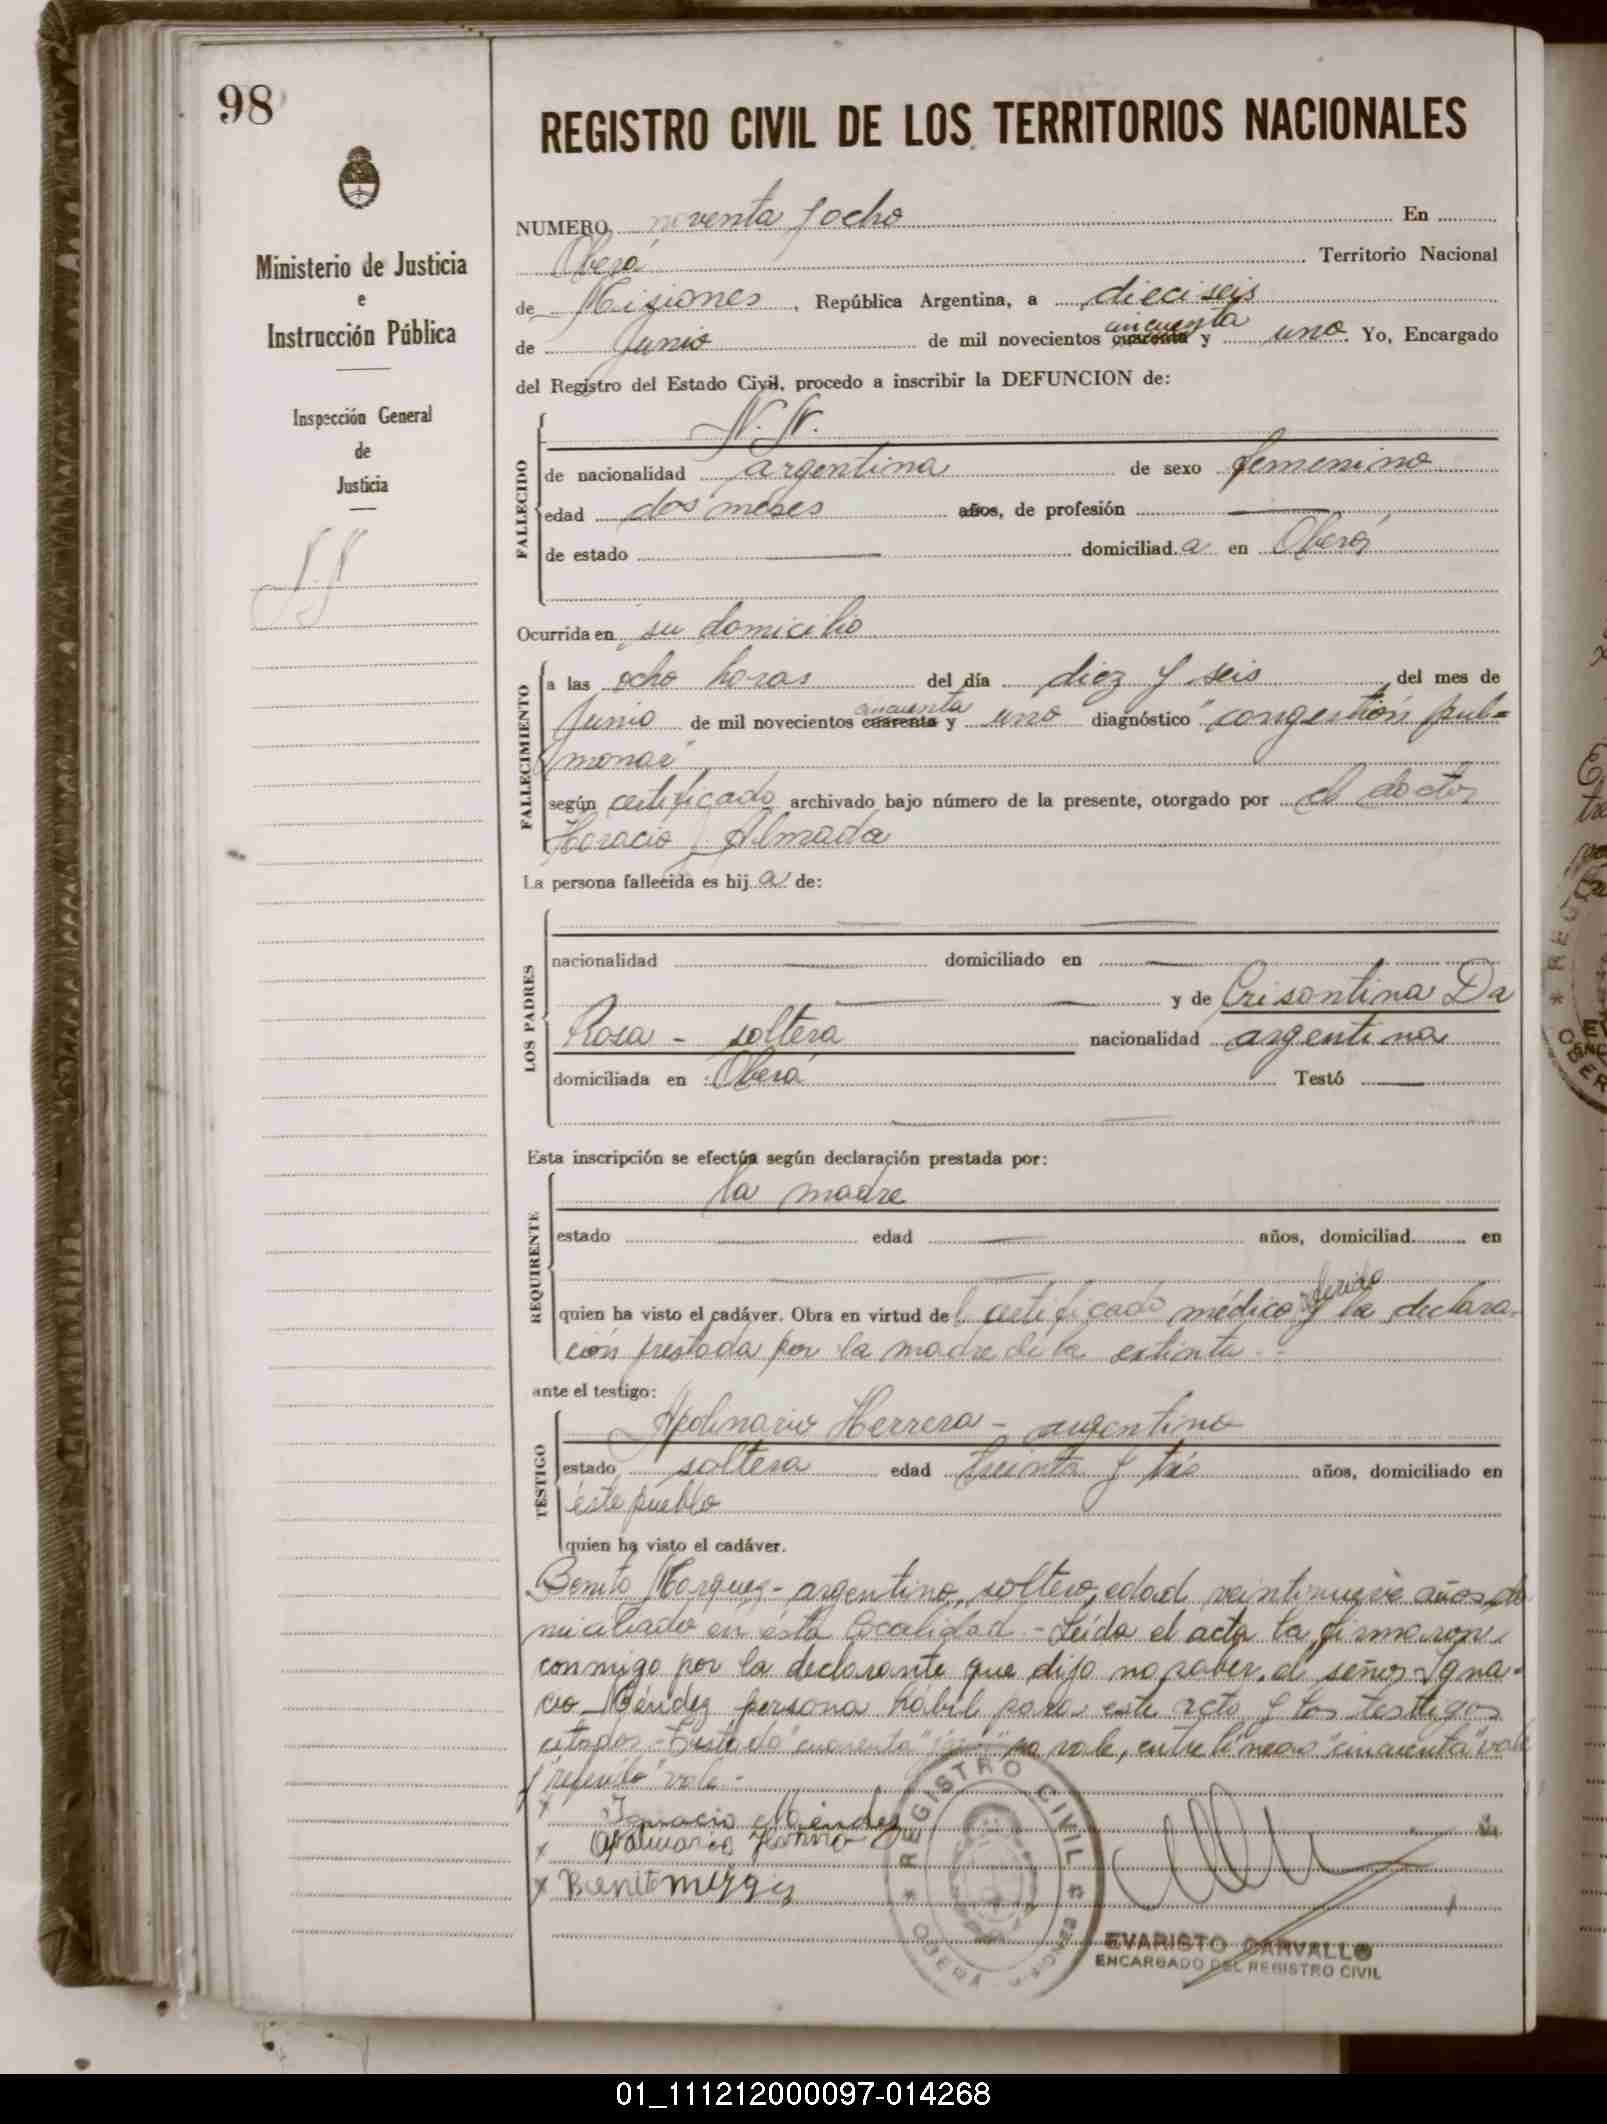 98
REGISTRO CIVIL DE LOS TERRITORIOS NACIONALES
Ministerio de Justicia
e
Instrucción Pública
Inspección General
de
Justicia
NUMERO noventa y ocho En
Oberá Territorio Nacional
de Misiones, República Argentina, a dieciseis
cincuenta
de Junio de mil novecientos cuarenta y uno. Yo, Encargado
del Registro del Estado Civil, procedo a inscribir la DEFUNCION de:
FALLECIDO
N. N.
de nacionalidad argentina de sexo femenino
edad dos meses años, de profesión
de estado domiciliad a en Oberá
Ocurrida en su domicilio
FALLECIMIENTO
a las ocho horas del día diez y seis del mes de
cincuenta
Junio de mil novecientos cuarenta y uno diagnóstico "congestión pul-
monar"
según certificado archivado bajo número de la presente, otorgado por el doctor
Horacio J. Almada
La persona fallecida es hij a de:
LOS PADRES
nacionalidad domiciliado en
y de Crisontina Da
Rosa - soltera nacionalidad argentina
domiciliada en Oberá Testó
Esta inscripción se efectúa según declaración prestada por:
REQUIRENTE
la madre
estado edad años, domiciliad en
referido
quien ha visto el cadáver. Obra en virtud del certificado médico y la declara-
ción prestada por la madre de la extinta.
ante el testigo:
TESTIGO
Apolinario Herrera - argentino
estado soltera edad treinta y tres años, domiciliado en
éste pueblo
quien ha visto el cadáver.
Benito Marquez - argentino, soltero, edad veintinueve años, do
miciliado en ésta localidad. - Leída el acta la firmaron
conmigo por la declarante que dijo no saber, el señor Igna-
cio Méndez persona hábil para este acto y los testigos
citados. - Testado "cuarenta" no vale, entre líneas "cincuenta" vale
y "referido" vale. -
x Ignacio Méndez
x
x
REGISTRO CIVIL
OBERÁ
EVARISTO CARVALLO
ENCARGADO DEL REGISTRO CIVIL
01_111212000097-014268